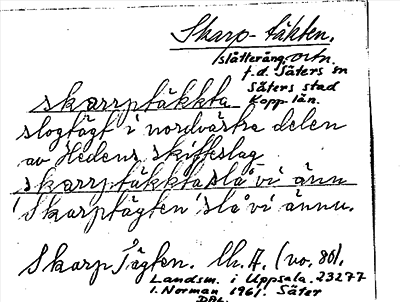 Skarp-täkten.
slåtteräng. Ortn.
f.d. Säters sn
Säters stad
Kopp. län.
skarrptäkkta
slogtägt i nordvästra delen
av Hedens skifteslag
skarrptäkktaslå vi änn
'Skarptägten' slå vi ännu.
Skarp Tägten. Lh. A. (no. 86).
Landsm. i Uppsala. 23277
I. Norman 1961. Säter
DAL.